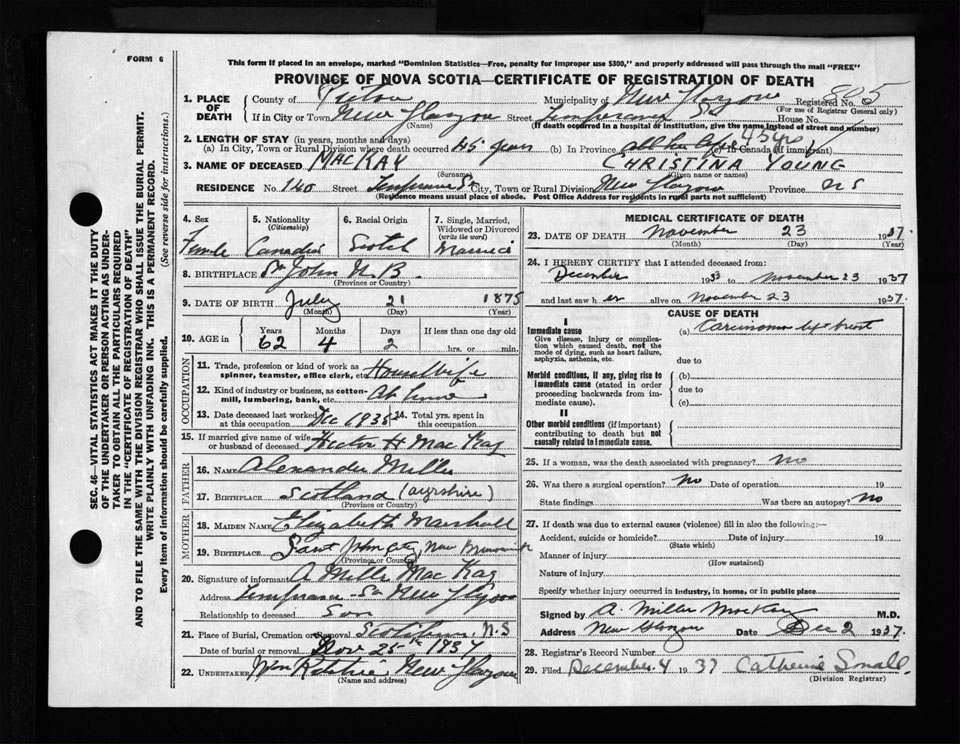 FORM 6
This form if placed in an envelope, marked "Dominion Statistics—Free, penalty for improper use $300," and properly addressed will pass through the mail "FREE"
PROVINCE OF NOVA SCOTIA—CERTIFICATE OF REGISTRATION OF DEATH
1. PLACE OF DEATH
County of Pictou Municipality of New Glasgow Registered No. 805
(For use of Registrar General only)
If in City or Town New Glasgow Street Temperance St House No.
(Name) (If death occurred in a hospital or institution, give the name instead of street and number)
2. LENGTH OF STAY (in years, months and days)
(a) In City, Town or Rural Division where death occurred 45 years (b) In Province all her life (c) In Canada (if immigrant)
3. NAME OF DECEASED MACKAY CHRISTINA YOUNG
(Surname) (Given name or names)
RESIDENCE No. 140 Street Temperance St City, Town or Rural Division New Glasgow Province N S
(Residence means usual place of abode. Post Office Address for residents in rural parts not sufficient)
4. Sex Female
5. Nationality (Citizenship) Canadian
6. Racial Origin Scotch
7. Single, Married, Widowed or Divorced (write the word) Married
8. BIRTHPLACE St John N.B.
(Province or Country)
9. DATE OF BIRTH July 21 1875
(Month) (Day) (Year)
10. AGE in Years 62 Months 4 Days 2 If less than one day old hrs. or min.
OCCUPATION
11. Trade, profession or kind of work as spinner, teamster, office clerk, etc. Housewife
12. Kind of industry or business, as cotton-mill, lumbering, bank, etc. At home
13. Date deceased last worked at this occupation Dec 1935 14. Total yrs. spent in this occupation
15. If married give name of wife or husband of deceased Hector H MacKay
FATHER
16. NAME Alexander Miller
17. BIRTHPLACE Scotland (Ayrshire)
(Province or Country)
MOTHER
18. MAIDEN NAME Elizabeth Marshall
19. BIRTHPLACE Saint John City New Brunswick
(Province or Country)
20. Signature of informant A Miller MacKay
Address Temperance St New Glasgow
Relationship to deceased Son
21. Place of Burial, Cremation or Removal N.S
Date of burial or removal Nov 25th 1937
22. UNDERTAKER Wm Ritchie, New Glasgow
(Name and address)
MEDICAL CERTIFICATE OF DEATH
23. DATE OF DEATH November 23 1937
(Month) (Day) (Year)
24. I HEREBY CERTIFY that I attended deceased from:
December 1933 to November 23 1937
and last saw her alive on November 23 1937.
CAUSE OF DEATH
I
Immediate cause (a) Carcinoma of breast
Give disease, injury or complication which caused death, not the mode of dying, such as heart failure, asphyxia, asthenia, etc.
due to
Morbid conditions, if any, giving rise to immediate cause (stated in order proceeding backwards from immediate cause). (b)
due to
(c)
II
Other morbid conditions (if important) contributing to death but not causally related to immediate cause.
25. If a woman, was the death associated with pregnancy? No
26. Was there a surgical operation? No Date of operation 19
State findings Was there an autopsy? No
27. If death was due to external causes (violence) fill in also the following:—
Accident, suicide or homicide? Date of injury 19
(State which)
Manner of injury
(How sustained)
Nature of injury
Specify whether injury occurred in industry, in home, or in public place
Signed by A. Miller MacKay M.D.
Address New Glasgow Date Dec 2 1937.
28. Registrar's Record Number
29. Filed December 4 1937 Catherine Small
(Division Registrar)
SEC. 46—VITAL STATISTICS ACT MAKES IT THE DUTY
OF THE UNDERTAKER OR PERSON ACTING AS UNDER-
TAKER TO OBTAIN ALL THE PARTICULARS REQUIRED
IN THE "CERTIFICATE OF REGISTRATION OF DEATH"
AND TO FILE THE SAME WITH THE DIVISION REGISTRAR WHO SHALL ISSUE THE BURIAL PERMIT.
WRITE PLAINLY WITH UNFADING INK. THIS IS A PERMANENT RECORD.
Every item of information should be carefully supplied. (See reverse side for instructions.)